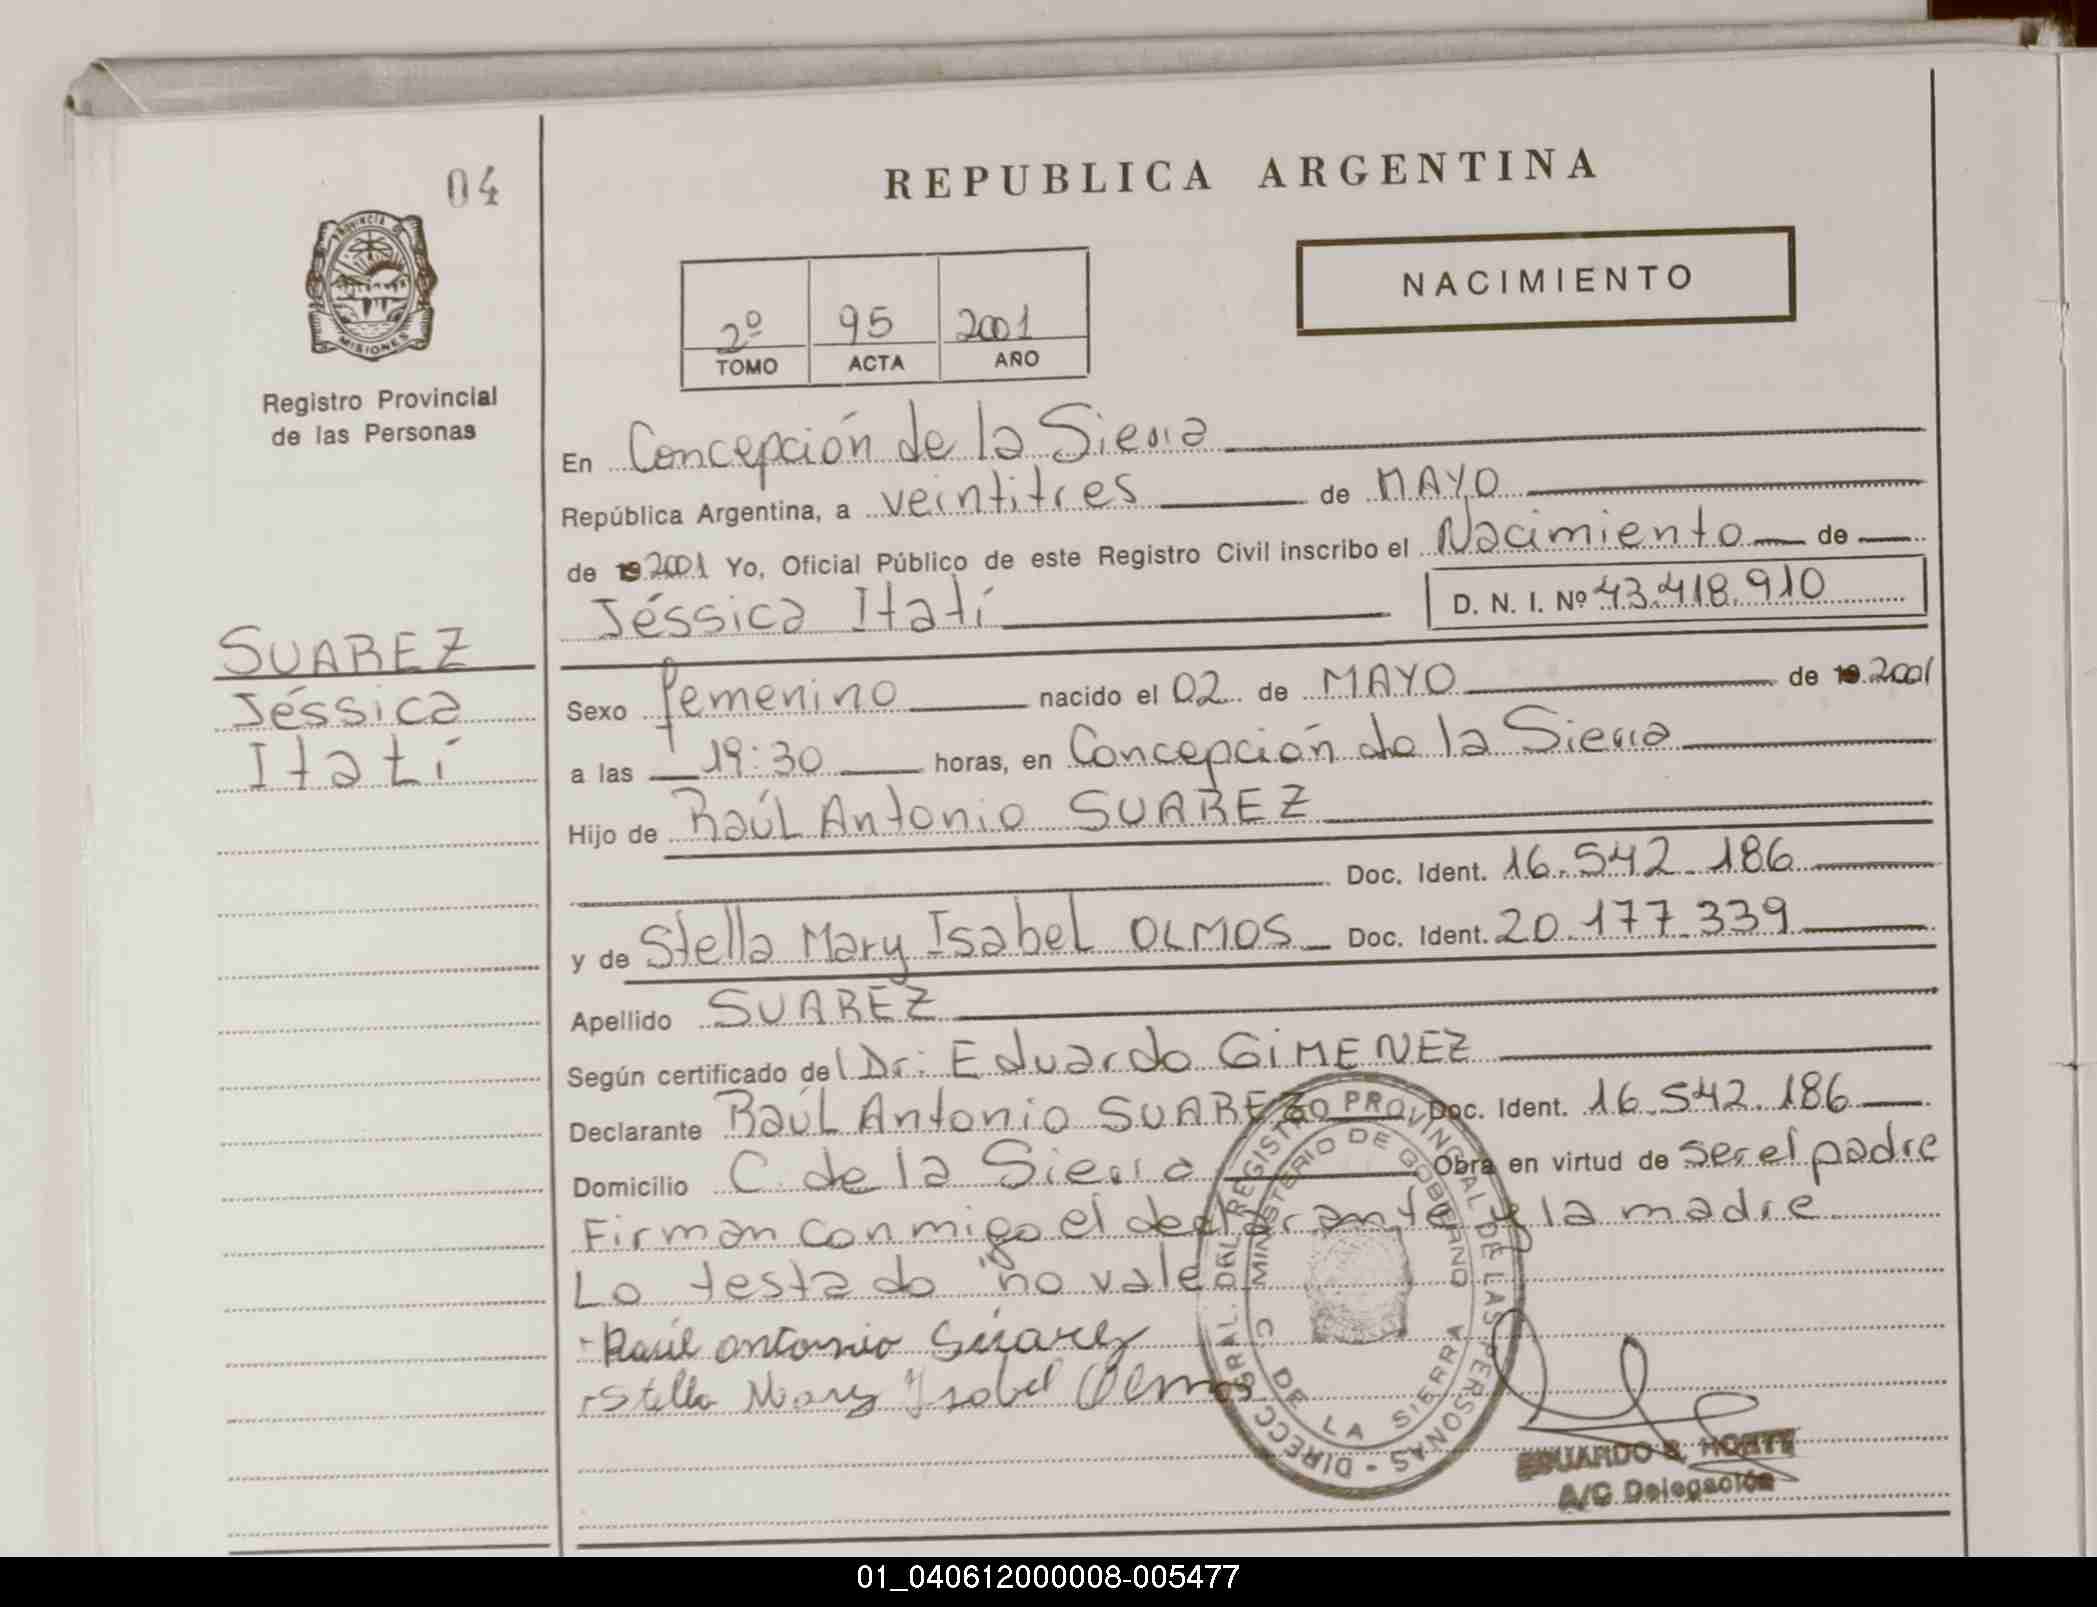 04
PROVINCIA DE
MISIONES
Registro Provincial
de las Personas
SUAREZ
Jéssica
Itatí
REPUBLICA ARGENTINA
NACIMIENTO
2º 95 2001
TOMO ACTA AÑO
En Concepción de la Sierra
República Argentina, a veintitres de MAYO
de 19 2001 Yo, Oficial Público de este Registro Civil inscribo el Nacimiento de
Jéssica Itatí D. N. I. Nº 43.418.910
Sexo femenino nacido el 02 de MAYO de 19 2001
a las 19:30 horas, en Concepción de la Sierra
Hijo de Raúl Antonio SUAREZ
Doc. Ident. 16.542.186
y de Stella Mary Isabel OLMOS Doc. Ident. 20.177.339
Apellido SUAREZ
Según certificado del Dr: Eduardo GiMENEZ
Declarante Raúl Antonio SUAREZ Doc. Ident. 16.542.186
Domicilio C. de la Sierra Obra en virtud de ser el padre
Firman conmigo el declarante y la madre
Lo testado no vale
Raúl antonio Súarez
Stella Mary Isabel Olmos
DIRECC. GRAL. DEL REGISTRO PROVINCIAL DE LAS PERSONAS -
MINISTERIO DE GOBIERNO
C. DE LA SIERRA
EDUARDO
A/C Delegación
01_040612000008-005477